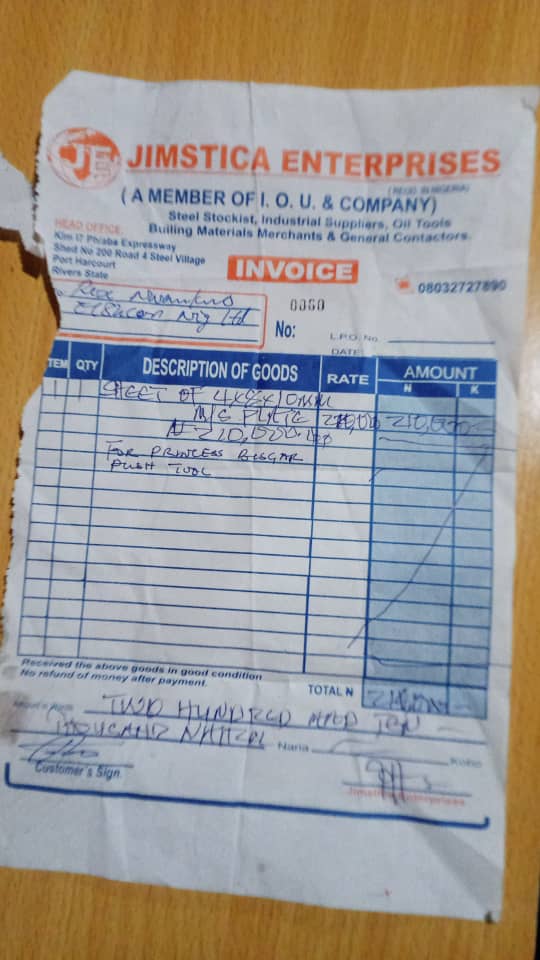 JE
JIMSTICA ENTERPRISES
(REGD. IN NIGERIA)
( A MEMBER OF I. O. U. & COMPANY)
Steel Stockist, Industrial Suppliers, Oil Tools
Builing Materials Merchants & General Contactors.
HEAD OFFICE:
Km 17 Ph/aba Expressway
Shed No 200 Road 4 Steel Village
Port Harcourt
Rivers State
INVOICE
08032727890
Nig Ltd
No:
L.P.O. No.
DATE
ITEM QTY DESCRIPTION OF GOODS RATE AMOUNT
N K
1 1 SHEET OF 4X8X10MM
M/S PLATE 210,000 210,000
N 210,000.00
FOR PRINCESS BEGGAR
PUSH TOOL
Received the above goods in good condition
No refund of money after payment.
TOTAL N 210,000
Amount in Words TWO HUNDRED AND TEN
THOUSAND NAIRA Naria Kobo
Customer's Sign.
Jimstica Enterprises